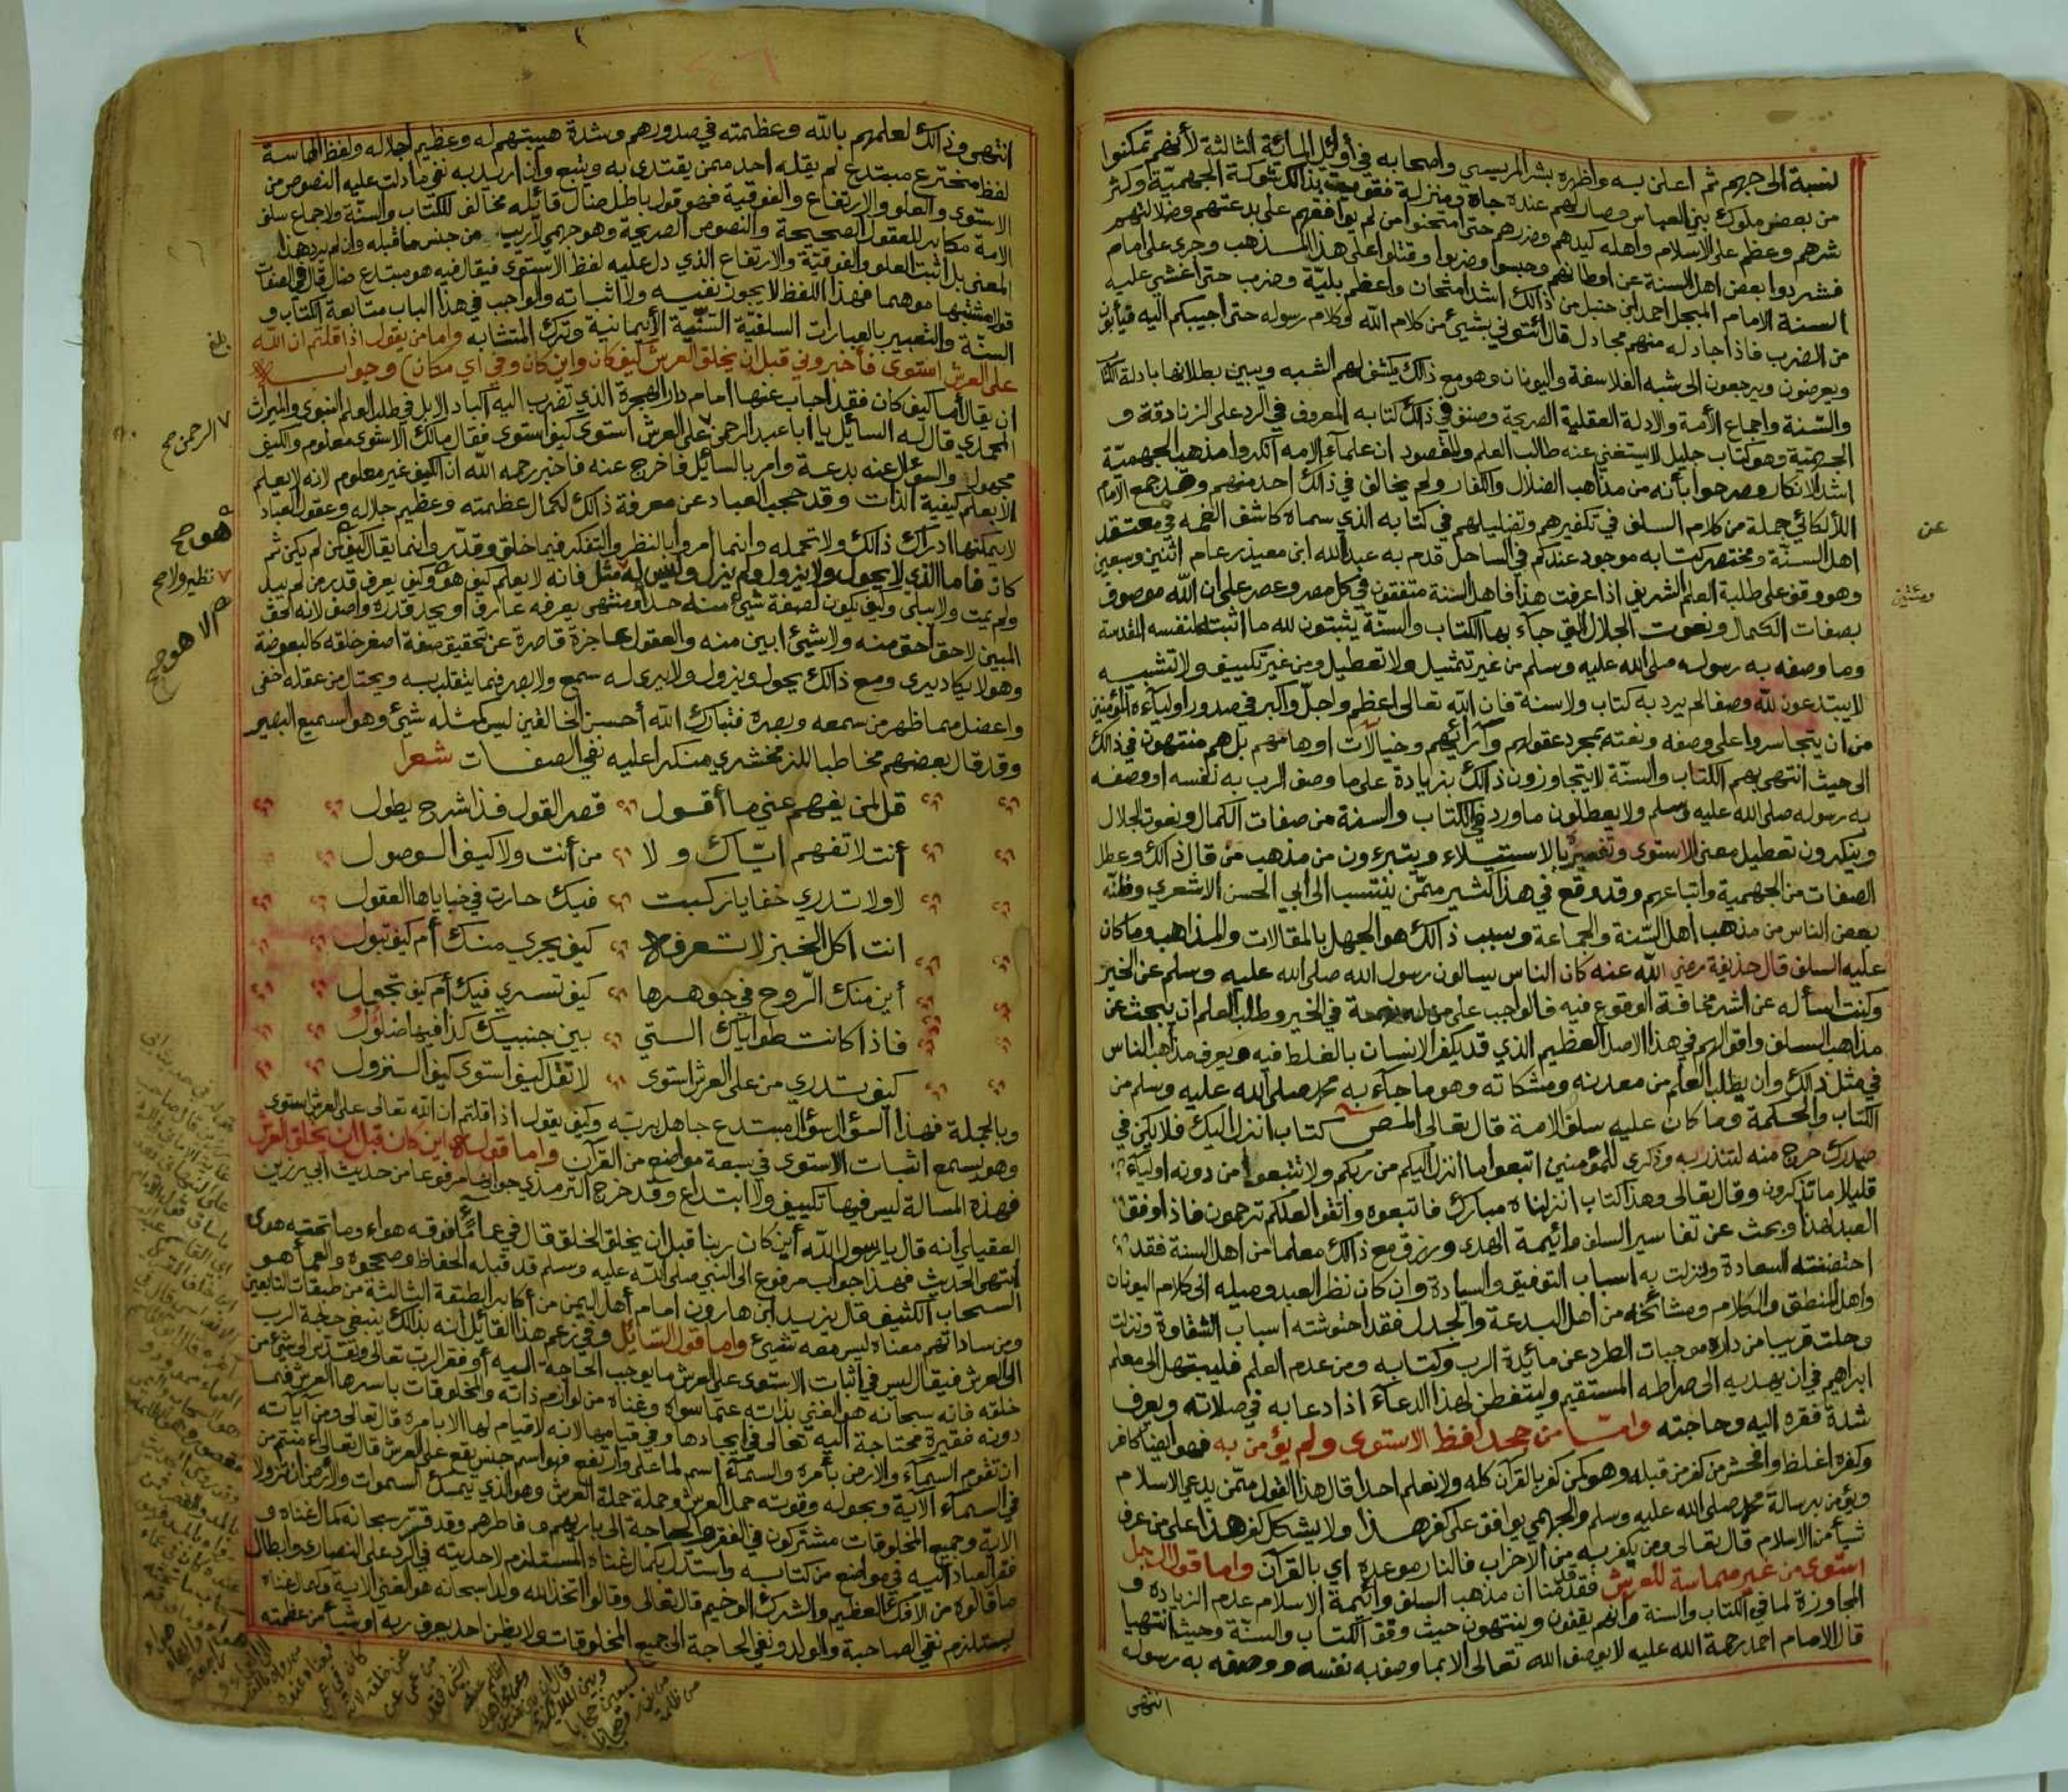 نسبة الى جهم ثم اعلن به واظهره بشر المريسي واصحابه في أوئل المائة الثالثة لأنهم تمكنوا
من بعض ملوك بني العباس وصار لهم عنده جاه ومنزلة فقويت بذالك شوكة الجهمية وكثر
شرهم وعظم على الاسلام واهله كيدهم وضررهم حتى امتحنوا من لم يوافقهم على بدعتهم وضلالتهم
فشردوا بعض اهل السنة عن اوطانهم وحبسوا وضربوا وقتلوا على هذا المذهب وجرى على امام
السنة الامام المبجل احمد ابن حنبل من ذالك اشد امتحان واعظم بليّة وضرب حتى اغشي عليه
من الضرب فاذا جادله منهم مجادل قال ائتوني بشيئ من كلام الله او كلام رسوله حتى اجيبكم اليه فيأبون
ويعرضون ويرجعون الى شبه الفلاسفة واليونان وهو مع ذالك يكشف لهم الشبه ويبين بطلانها بادلة الكتاب
والسّنة واجماع الأمة والادلة العقلية الصريحة وصنف في ذالك كتابه المعروف في الرد على الزنادقة و
الجهمية وهو كتاب جليل لا يستغني عنه طالب العلم والمقصود ان علماء الامه انكروا مذهب الجهميّة
اشد الانكار وصرحوا بأنه من مذاهب الضلال والكفار ولم يخالف في ذالك احد منهم وقد جمع الامام
اللألكائي جملة من كلام السلف في تكفيرهم وتضليلهم في كتابه الذي سماه كاشف الغمه في معتقد
اهل السنّة ومختصر كتابه موجود عندكم في الساحل قدم به عبد الله ابن معيذر عام اثنين وسبعين
وهو وقف على طلبة العلم الشريف اذا عرفت هذا فاهل السنة متفقون في كل مصر وعصر على ان الله موصوف
بصفات الكمال ونعوت الجلال التي جاء بها الكتاب والسنّة يثبتون لله ما اثبته لنفسه المقدسة
وما وصفه به رسوله صلى الله عليه وسلم من غير تمثيل ولا تعطيل ومن غير تكييف ولا تشبيه
لا يبتدعون لله وصفا لم يرد به كتاب ولا سنة فان الله تعالى اعظم واجلّ واكبر في صدور اوليآءه المؤمنين
من ان يتجاسروا على وصفه ونعته بمجرد عقولهم وآرائهم وخيالات اوهامهم بل هم منتهون في ذالك
الى حيث انتهى بهم الكتاب والسنّة لا يتجاوزون ذالك بزيادة على ما وصف الرب به نفسه او وصفه
به رسوله صلى الله عليه وسلم ولا يعطلون ما ورد في الكتاب والسنة من صفات الكمال ونعوت الجلال
وينكرون تعطيل معنى الاستوى وتفسيره بالاستيلاء ويتبرءون من مذهب من قال ذالك وعطل
الصفات من الجهمية واتباعهم وقد وقع في هذا كثير ممّن ينتسب الى ابي الحسن الاشعري وظنّه
بعض الناس من مذهب أهل السّنة والجماعة وسبب ذالك هو الجهل بالمقالات والمذاهب وما كان
عليه السلف قال حذيفة رضي الله عنه كان الناس يسالون رسول الله صلى الله عليه وسلم عن الخير
وكنت اسأله عن الشر مخافة الوقوع فيه فالواجب على من له نهمة في الخير وطلب العلم ان يبحث عن
مذاهب السلف واقوالهم في هذا الاصل العظيم الذي قد يكفر الانسان بالغلط فيه ويعرف مذاهب الناس
في مثل ذالك وان يطلب العلم من معدنه ومشكاته وهو ما جآء به محمد صلى الله عليه وسلم من
الكتاب والحكمة وما كان عليه سلف الامة قال تعالى المص كتاب انزل اليك فلا يكن في
صدرك حرج منه لتنذر به وذكرى للمؤمنين اتبعوا ما انزل اليكم من ربكم ولا تتبعوا من دونه اوليآء
قليلا ما تذكرون وقال تعالى وهذا كتاب انزلناه مبارك فاتبعوه واتقوا لعلكم ترحمون فاذا وفق
العبد لهذا وبحث عن تفاسير السلف وائيمة الهدى ورزق مع ذالك معلما من اهل السنة فقد
احتضنته السعادة ونزلت به اسباب التوفيق والسيادة وان كان نظر العبد وميله الى كلام اليونان
واهل المنطق والكلام ومشائخه من اهل البدعة والجدل فقد احتوشته اسباب الشقاوة ونزلت
وحلت قريبا من داره موجبات الطرد عن مائدة الرب وكتابه ومن عدم العلم فليبتهل الى معلم
ابراهيم في ان يهديه الى صراطه المستقيم وليتفطن لهذا الدعاء اذا دعا به في صلاته ويعرف
شدة فقره اليه وحاجته وامّا من جحد لفظ الاستوى ولم يؤمن به فهو ايضا كافر
وكفره اغلظ وافحش من كفر من قبله وهو كمن كفر بالقرآن كله ولا نعلم احدا قال هذا القول ممّن يدعي الاسلام
ويؤمن برسالة محمد صلى الله عليه وسلم والجهمي يوافق على كفر هذا ولا يشكل كفر هذا على من عرف
شيأ من الاسلام قال تعالى ومن يكفر به من الاحزاب فالنار موعده اي بالقرآن واما قول الرجل
استوى من غير مماسة للعرش فقد قدمنا ان مذهب السلف وائيمة الاسلام عدم الزياده و
المجاوزة لما في الكتاب والسنة وانهم يقفون وينتهون حيث وقف الكتاب والسنّة وحيث انتهيا
قال الامام احمد رحمة الله عليه لا يوصف الله تعالى الا بما وصف به نفسه ووصفه به رسوله
انتهى
عن
ومئتين
انتهى وذالك لعلمهم بالله وعظمته في صدورهم وشدة هيبتهم له وعظيم اجلاله ولفظ المماسة
لفظ مخترع مبتدع لم يقله احد ممن يقتدى به ويتبع وان اريد به نفي ما دلت عليه النصوص من
الاستوى والعلو والارتفاع والفوقية فهو قول باطل ضال قائله مخالف للكتاب والسنّة ولاجماع سلف
الامة مكابر للعقول الصحيحة والنصوص الصريحة وهو جهمي لا ريب من جنس ما قبله وان لم يرد هذا
المعنى بل اثبت العلو والفوقيّة والارتفاع الذي دل عليه لفظ الاستوى فيقال فيه هو مبتدع ضال قال في الصفات
قولا مشتبها موهما فهذا اللفظ لا يجوز نفيه ولا اثباته والواجب في هذا الباب متابعة الكتاب و
السنّة والتعبير بالعبارات السلفيّة السّنّيّة الأيمانية وترك المتشابه واما من يقول اذا قلتم ان الله
على العرش استوى فأخبروني قبل ان يخلق العرش كيف كان واين كان وفي اي مكان وجوابه
ان يقال أما كيف كان فقد اجاب عنها امام دار الهجرة الذي تضرب اليه اكباد الابل في طلب العلم النبوي والميراث
المحمدي قال له السائل يا ابا عبد الرحمن على العرش استوى كيف استوى فقال مالك الاستوى معلوم والكيف
مجهول والسؤال عنه بدعة وامر بالسائل فاخرج عنه فاخبر رحمه الله ان الكيف غير معلوم لانه لا يعلم
الا بعلم كيفية الذات وقد حجب العباد عن معرفة ذالك لكمال عظمته وعظيم جلاله وعقول العباد
لا يمكنها ادراك ذالك ولا تحمله وانما امروا بالنظر والتفكر فيما خلق وقدّر وانما يقال كيف لمن لم يكن ثم
كان فاما الذي لا يحول ولا يزول ولم يزل وليس له مثل فانه لا يعلم كيف هو وكيف يعرف قدر من لم يبد
ولم يمت ولا يبلى وكيف يكون لصفة شيئ منه حد او منتهى يعرفه عارف او يحد قدره واصف لانه الحق
المبين لا حق احق منه ولا شيئ ابين منه والعقول عاجزة قاصرة عن تحقيق صفة اصغر خلقه كالبعوضة
وهو لا يكاد يرى ومع ذالك يحول ويزول ولا يرى له سمع ولا بصر فما يتقلب به ويحتال من عقله اخفى
واعضل مما ظهر من سمعه وبصره فتبارك الله أحسن الخالقين ليس كمثله شيئ وهو السميع البصير
وقد قال بعضهم مخاطبا للزمخشري منكرا عليه نفي الصفات شعرا
قل لمن يفهم عني ما أقول قصر القول فذا شرح يطول
أنت لا تفهم ايّاك ولا من أنت ولا كيف الوصول
لا ولا تدري خفايا ركبت فيك حارت في خباياها العقول
انت اكل الخبز لا تعرفه كيف يجري منك أم كيف تبول
أين منك الرّوح في جوهرها كيف تسري فيك أم كيف تجول
فاذا كانت طواياك التي بين جنبيك كذا فيها ضلول
كيف تدري من على العرش استوى لا تقل كيف استوى كيف النزول
وبالجملة فهذا السؤال سؤال مبتدع جاهل بربّه وكيف يقول اذا قلتم ان الله تعالى على العرش استوى
وهو يسمع اثبات الاستوى في سبعة مواضع من القرآن واما قوله اين كان قبل ان يخلق العرش
فهذه المسالة ليس فيها تكييف ولا ابتداع وقد خرج الترمذي جوابها مرفوعا من حديث ابي رزين
العقيلي أنه قال يا رسول الله أين كان ربنا قبل ان يخلق الخلق قال في عمآء ما فوقه هواء وما تحته هوى
انتهى الحديث فهذا جواب مرفوع الى النبي صلى الله عليه وسلم قد قبله الحفاظ وصححوه والعمأ هو
السحاب الكثيف قال يزيد ابن هارون امام أهل اليمن من أكابر الطبقة الثالثة من طبقات التابعين
ومن ساداتهم معناه ليس معه شيئ واما قول السّائل وفي زعم هذا القائل أنه بذالك ينبغي حاجة الرب
الى العرش فيقال ليس في اثبات الاستوى على العرش ما يوجب الحاجة اليه أو فقر الربّ تعالى وتقدّس الى شيئ من
خلقه فانه سبحانه هو الغني بذاته عمّا سواه وغناه من لوازم ذاته والمخلوقات باسرها العرش فما
دونه فقيرة محتاجة اليه تعالى في ايجادها وفي قيامها لانه لا قيام لها الا بامره قال تعالى ومن آياته
ان تقوم السمآء والارض بأمره والسمآء اسم لما على وارتفع فهو اسم جنس يقع على العرش قال تعالى ءامنتم من
في السمآء الآية وبحوله وقوته حمل العرش وحملة حملة العرش وهو الذي يمسك السموات والأرض ان تزولا
الايه وجميع المخلوقات مشتركون في الفقر والحاجة الى باريهم وفاطرهم وقد قرّر سبحانه كمال غناه و
فقر العباد اليه في مواضع من كتابه واستدل بكمال غناه المستلزم لاحديته في الرد على النصارى وابطال
ما قالوه من الافك العظيم والشرك الوخيم قال تعالى وقالوا اتخذ الله ولدا سبحانه هو الغني الاية وكمال غناه
يستلزم نفي الصاحبة والولد ونفي الحاجة الى جميع المخلوقات ولا يظن احد يعرف ربه او شيأ من عظمته
بلغ
الرحمن صح
هو صح
نظير ولا صح
الا هو صح